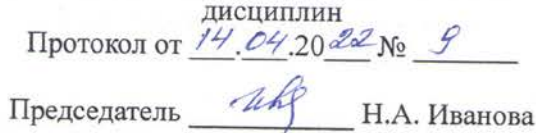 дисциплин
Протокол от 14.04.2022 № 9
Председатель Н.А. Иванова